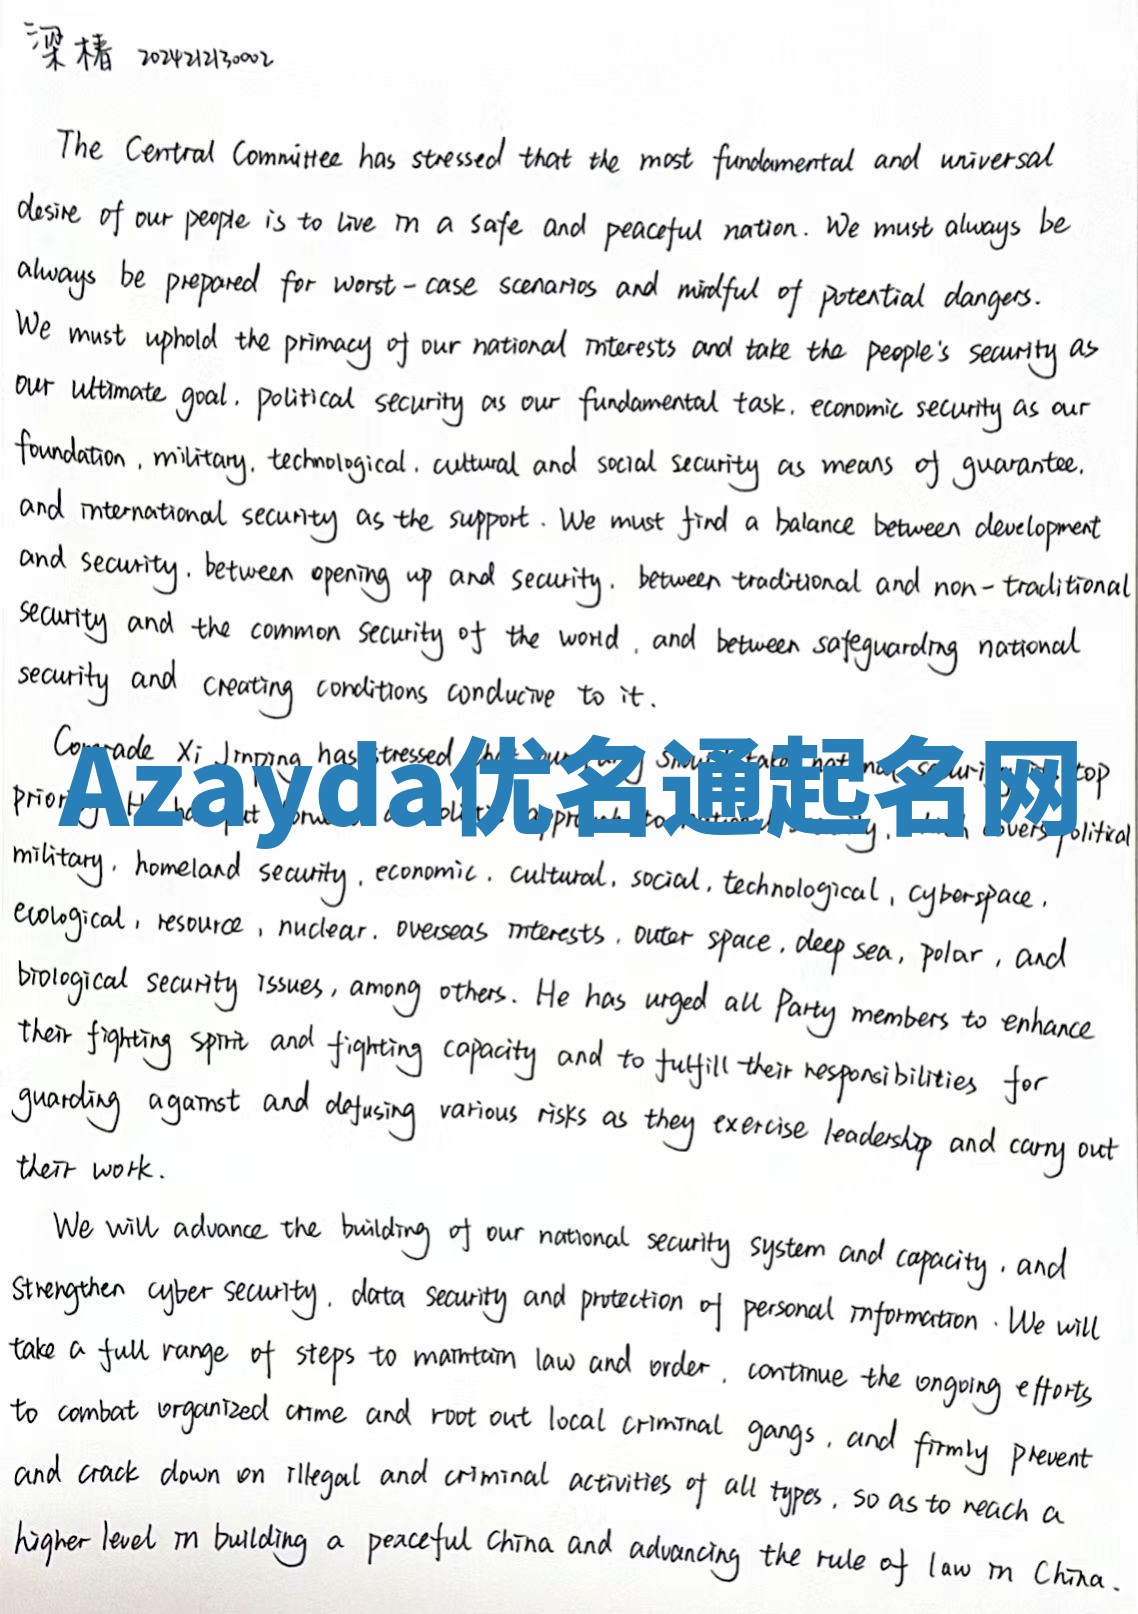 梁椿 2024212130002
The Central Committee has stressed that the most fundamental and universal
desire of our people is to live in a safe and peaceful nation. We must always be
always be prepared for worst-case scenarios and mindful of potential dangers.
We must uphold the primacy of our national interests and take the people's security as
our ultimate goal, political security as our fundamental task, economic security as our
foundation, military, technological, cultural and social security as means of guarantee,
and international security as the support. We must find a balance between development
and security, between opening up and security, between traditional and non-traditional
security and the common security of the world, and between safeguarding national
security and creating conditions conducive to it.
Comrade Xi Jinping has stressed take top
Azayda优名通起名网
to covers political
military, homeland security, economic, cultural, social, technological, cyberspace,
ecological, resource, nuclear, overseas interests, outer space, deep sea, polar, and
biological security issues, among others. He has urged all Party members to enhance
their fighting spirit and fighting capacity and to fulfill their responsibilities for
guarding against and defusing various risks as they exercise leadership and carry out
their work.
We will advance the building of our national security system and capacity, and
strengthen cyber security, data security and protection of personal information. We will
take a full range of steps to maintain law and order, continue the ongoing efforts
to combat organized crime and root out local criminal gangs, and firmly prevent
and crack down on illegal and criminal activities of all types, so as to reach a
higher level in building a peaceful China and advancing the rule of law in China.